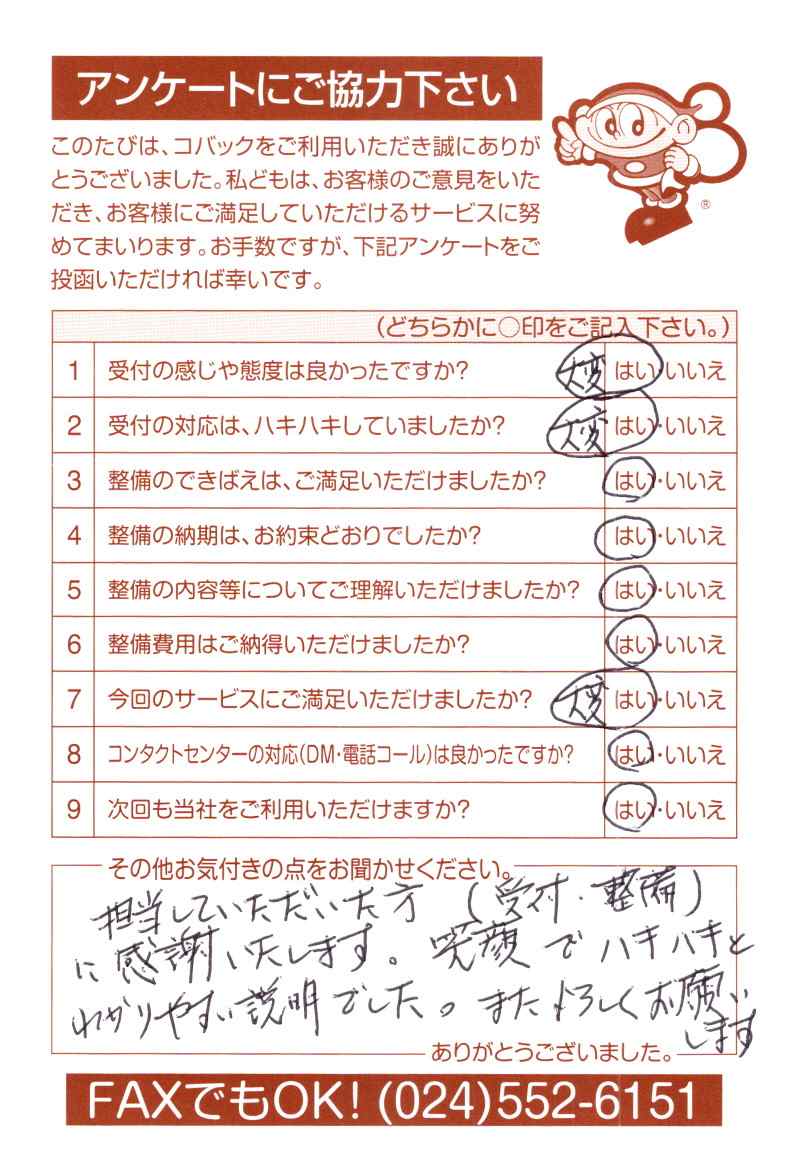 アンケートにご協力下さい
このたびは、コバックをご利用いただき誠にありが
とうございました。私どもは、お客様のご意見をいた
だき、お客様にご満足していただけるサービスに努
めてまいります。お手数ですが、下記アンケートをご
投函いただければ幸いです。
®
(どちらかに○印をご記入下さい。)
1 受付の感じや態度は良かったですか? 大変 はい・いいえ
2 受付の対応は、ハキハキしていましたか? 大変 はい・いいえ
3 整備のできばえは、ご満足いただけましたか? はい・いいえ
4 整備の納期は、お約束どおりでしたか? はい・いいえ
5 整備の内容等についてご理解いただけましたか? はい・いいえ
6 整備費用はご納得いただけましたか? はい・いいえ
7 今回のサービスにご満足いただけましたか? 大変 はい・いいえ
8 コンタクトセンターの対応(DM・電話コール)は良かったですか? はい・いいえ
9 次回も当社をご利用いただけますか? はい・いいえ
その他お気付きの点をお聞かせください。
担当していただいた方 (受付・整備)
に感謝いたします。笑顔でハキハキと
わかりやすい説明でした。また よろしくお願い
します
ありがとうございました。
FAXでもOK! (024)552-6151